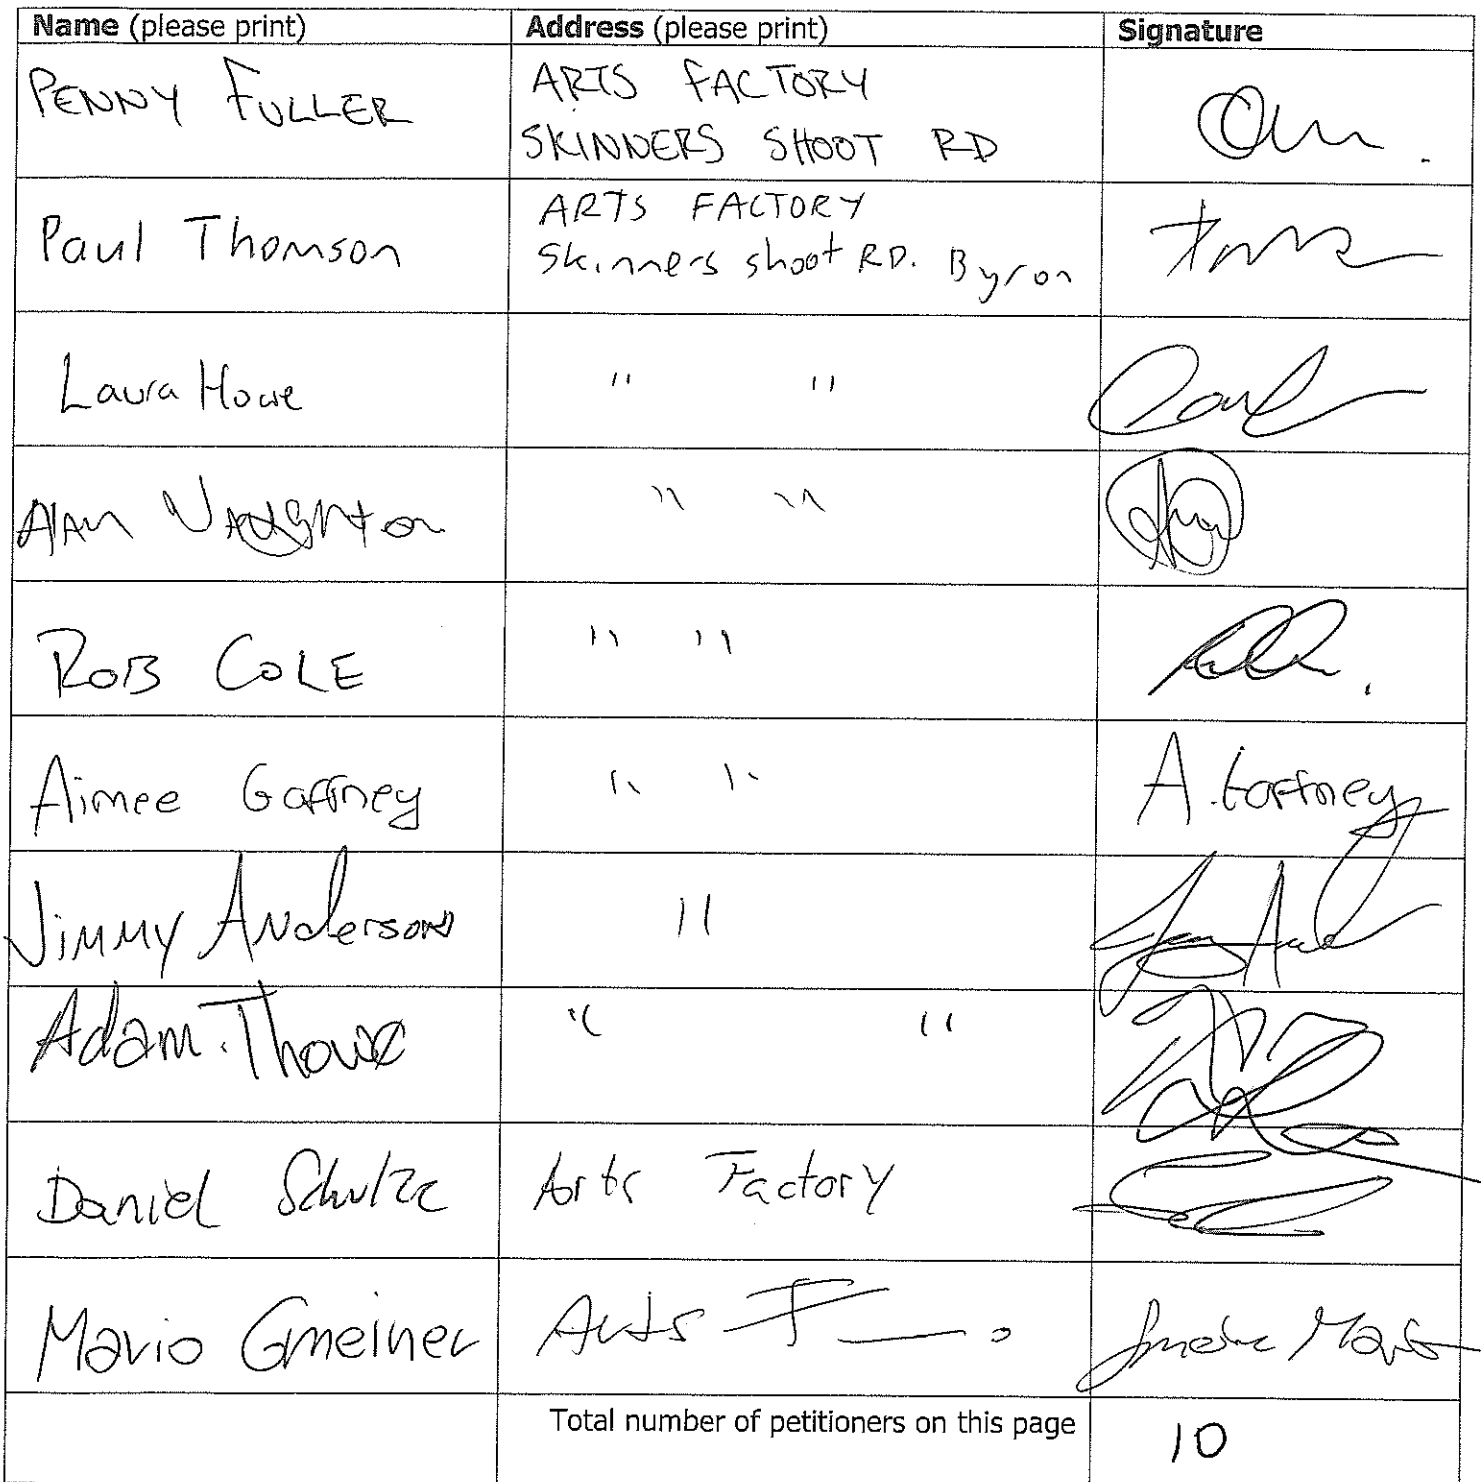 Name (please print) Address (please print) Signature
PENNY FULLER ARTS FACTORY
SKINNERS SHOOT RD
Paul Thomson ARTS FACTORY
Skinners shoot RD. Byron
Laura Howe " "
Alan Vaughton " "
ROB COLE " "
Aimee Gaffney " " A. Gaffney
Jimmy Anderson "
Adam " "
Daniel Schulze Arts Factory
Mario Gmeiner Arts F
Total number of petitioners on this page 10